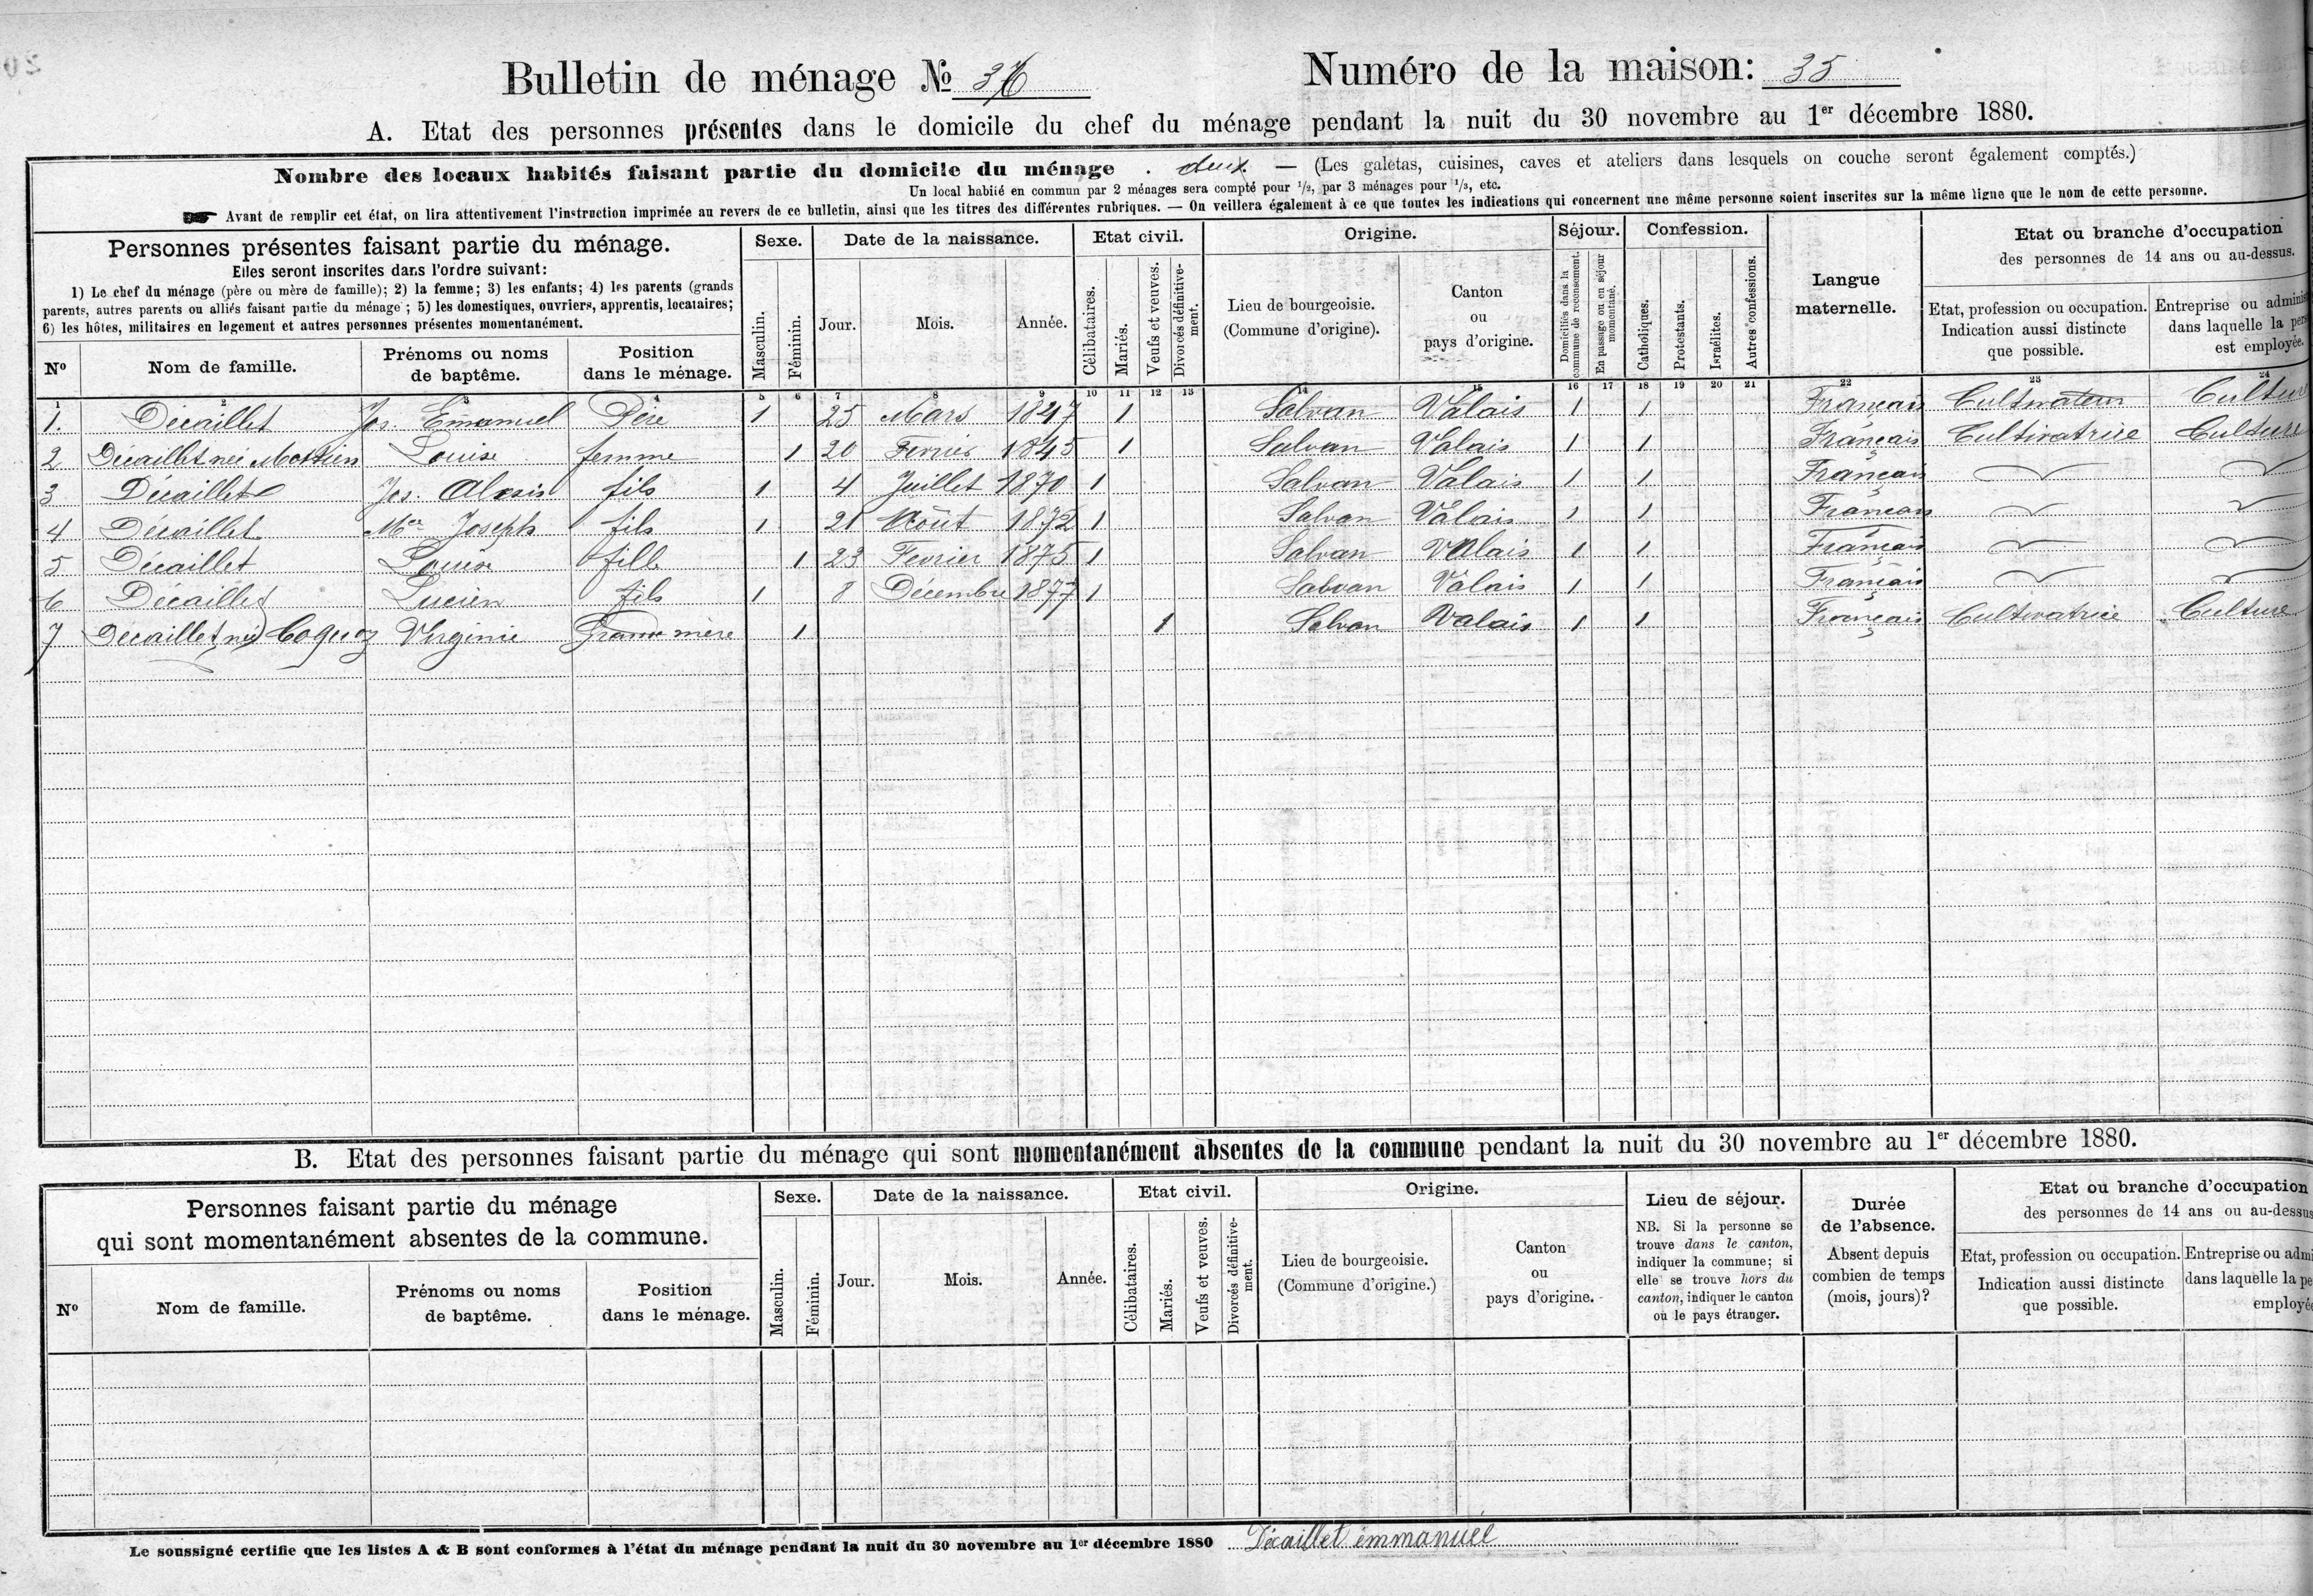 Bulletin de ménage № 36
Numéro de la maison: 35
A. Etat des personnes présentes dans le domicile du chef du ménage pendant la nuit du 30 novembre au 1er décembre 1880.
Nombre des locaux habités faisant partie du domicile du ménage . deux. — (Les galetas, cuisines, caves et ateliers dans lesquels on couche seront également comptés.)
Un local habité en commun par 2 ménages sera compté pour 1/2, par 3 ménages pour 1/3, etc.
Avant de remplir cet état, on lira attentivement l'instruction imprimée au revers de ce bulletin, ainsi que les titres des différentes rubriques. — On veillera également à ce que toutes les indications qui concernent une même personne soient inscrites sur la même ligne que le nom de cette personne.
Personnes présentes faisant partie du ménage.
Elles seront inscrites dans l'ordre suivant:
1) Le chef du ménage (père ou mère de famille); 2) la femme; 3) les enfants; 4) les parents (grands
parents, autres parents ou alliés faisant partie du ménage; 5) les domestiques, ouvriers, apprentis, locataires;
6) les hôtes, militaires en logement et autres personnes présentes momentanément.
Nº Nom de famille. Prénoms ou noms de baptême. Position dans le ménage.
Sexe. Masculin. Féminin.
Date de la naissance. Jour. Mois. Année.
Etat civil. Célibataires. Mariés. Veufs et veuves. Divorcés définitivement.
Origine. Lieu de bourgeoisie. (Commune d'origine). Canton ou pays d'origine.
Séjour. Domiciliés dans la commune de recensement. En passage ou en séjour momentané.
Confession. Catholiques. Protestants. Israélites. Autres confessions.
Langue maternelle.
Etat ou branche d'occupation
des personnes de 14 ans ou au-dessus.
Etat, profession ou occupation. Indication aussi distincte que possible.
Entreprise ou adminis
dans laquelle la pers
est employée.
1 2 3 4 5 6 7 8 9 10 11 12 13 14 15 16 17 18 19 20 21 22 23 24
1. Décaillet Jos. Emmanuel Père 1 25 Mars 1847 1 Salvan Valais 1 1 Français Cultivateur Cultur
2 Décaillet née Louise femme 1 20 Fevrier 1845 1 Salvan Valais 1 1 Français Cultivatrice Culture
3 Décaillet Jos. Alexis fils 1 4 Juillet 1870 1 Salvan Valais 1 1 Français
4 Décaillet Mce Joseph fils 1 21 Août 1872 1 Salvan Valais 1 1 Français
5 Décaillet Louise fille 1 23 Fevrier 1875 1 Salvan Valais 1 1 Français
6 Décaillet Lucien fils 1 8 Décembre 1877 1 Salvan Valais 1 1 Français
7 Décaillet née Coquoz Virginie Grand mère 1 1 Salvan Valais 1 1 Français Cultivatrice Culture
B. Etat des personnes faisant partie du ménage qui sont momentanément absentes de la commune pendant la nuit du 30 novembre au 1er décembre 1880.
Personnes faisant partie du ménage
qui sont momentanément absentes de la commune.
Nº Nom de famille. Prénoms ou noms de baptême. Position dans le ménage.
Sexe. Masculin. Féminin.
Date de la naissance. Jour. Mois. Année.
Etat civil. Célibataires. Mariés. Veufs et veuves. Divorcés définitivement.
Origine. Lieu de bourgeoisie. (Commune d'origine.) Canton ou pays d'origine.
Lieu de séjour.
NB. Si la personne se
trouve dans le canton,
indiquer la commune; si
elle se trouve hors du
canton, indiquer le canton
ou le pays étranger.
Durée
de l'absence.
Absent depuis
combien de temps
(mois, jours)?
Etat ou branche d'occupation
des personnes de 14 ans ou au-dessus
Etat, profession ou occupation. Indication aussi distincte que possible.
Entreprise ou admi
dans laquelle la pe
employée
Le soussigné certifie que les listes A & B sont conformes à l'état du ménage pendant la nuit du 30 novembre au 1er décembre 1880 Décaillet emmanuel